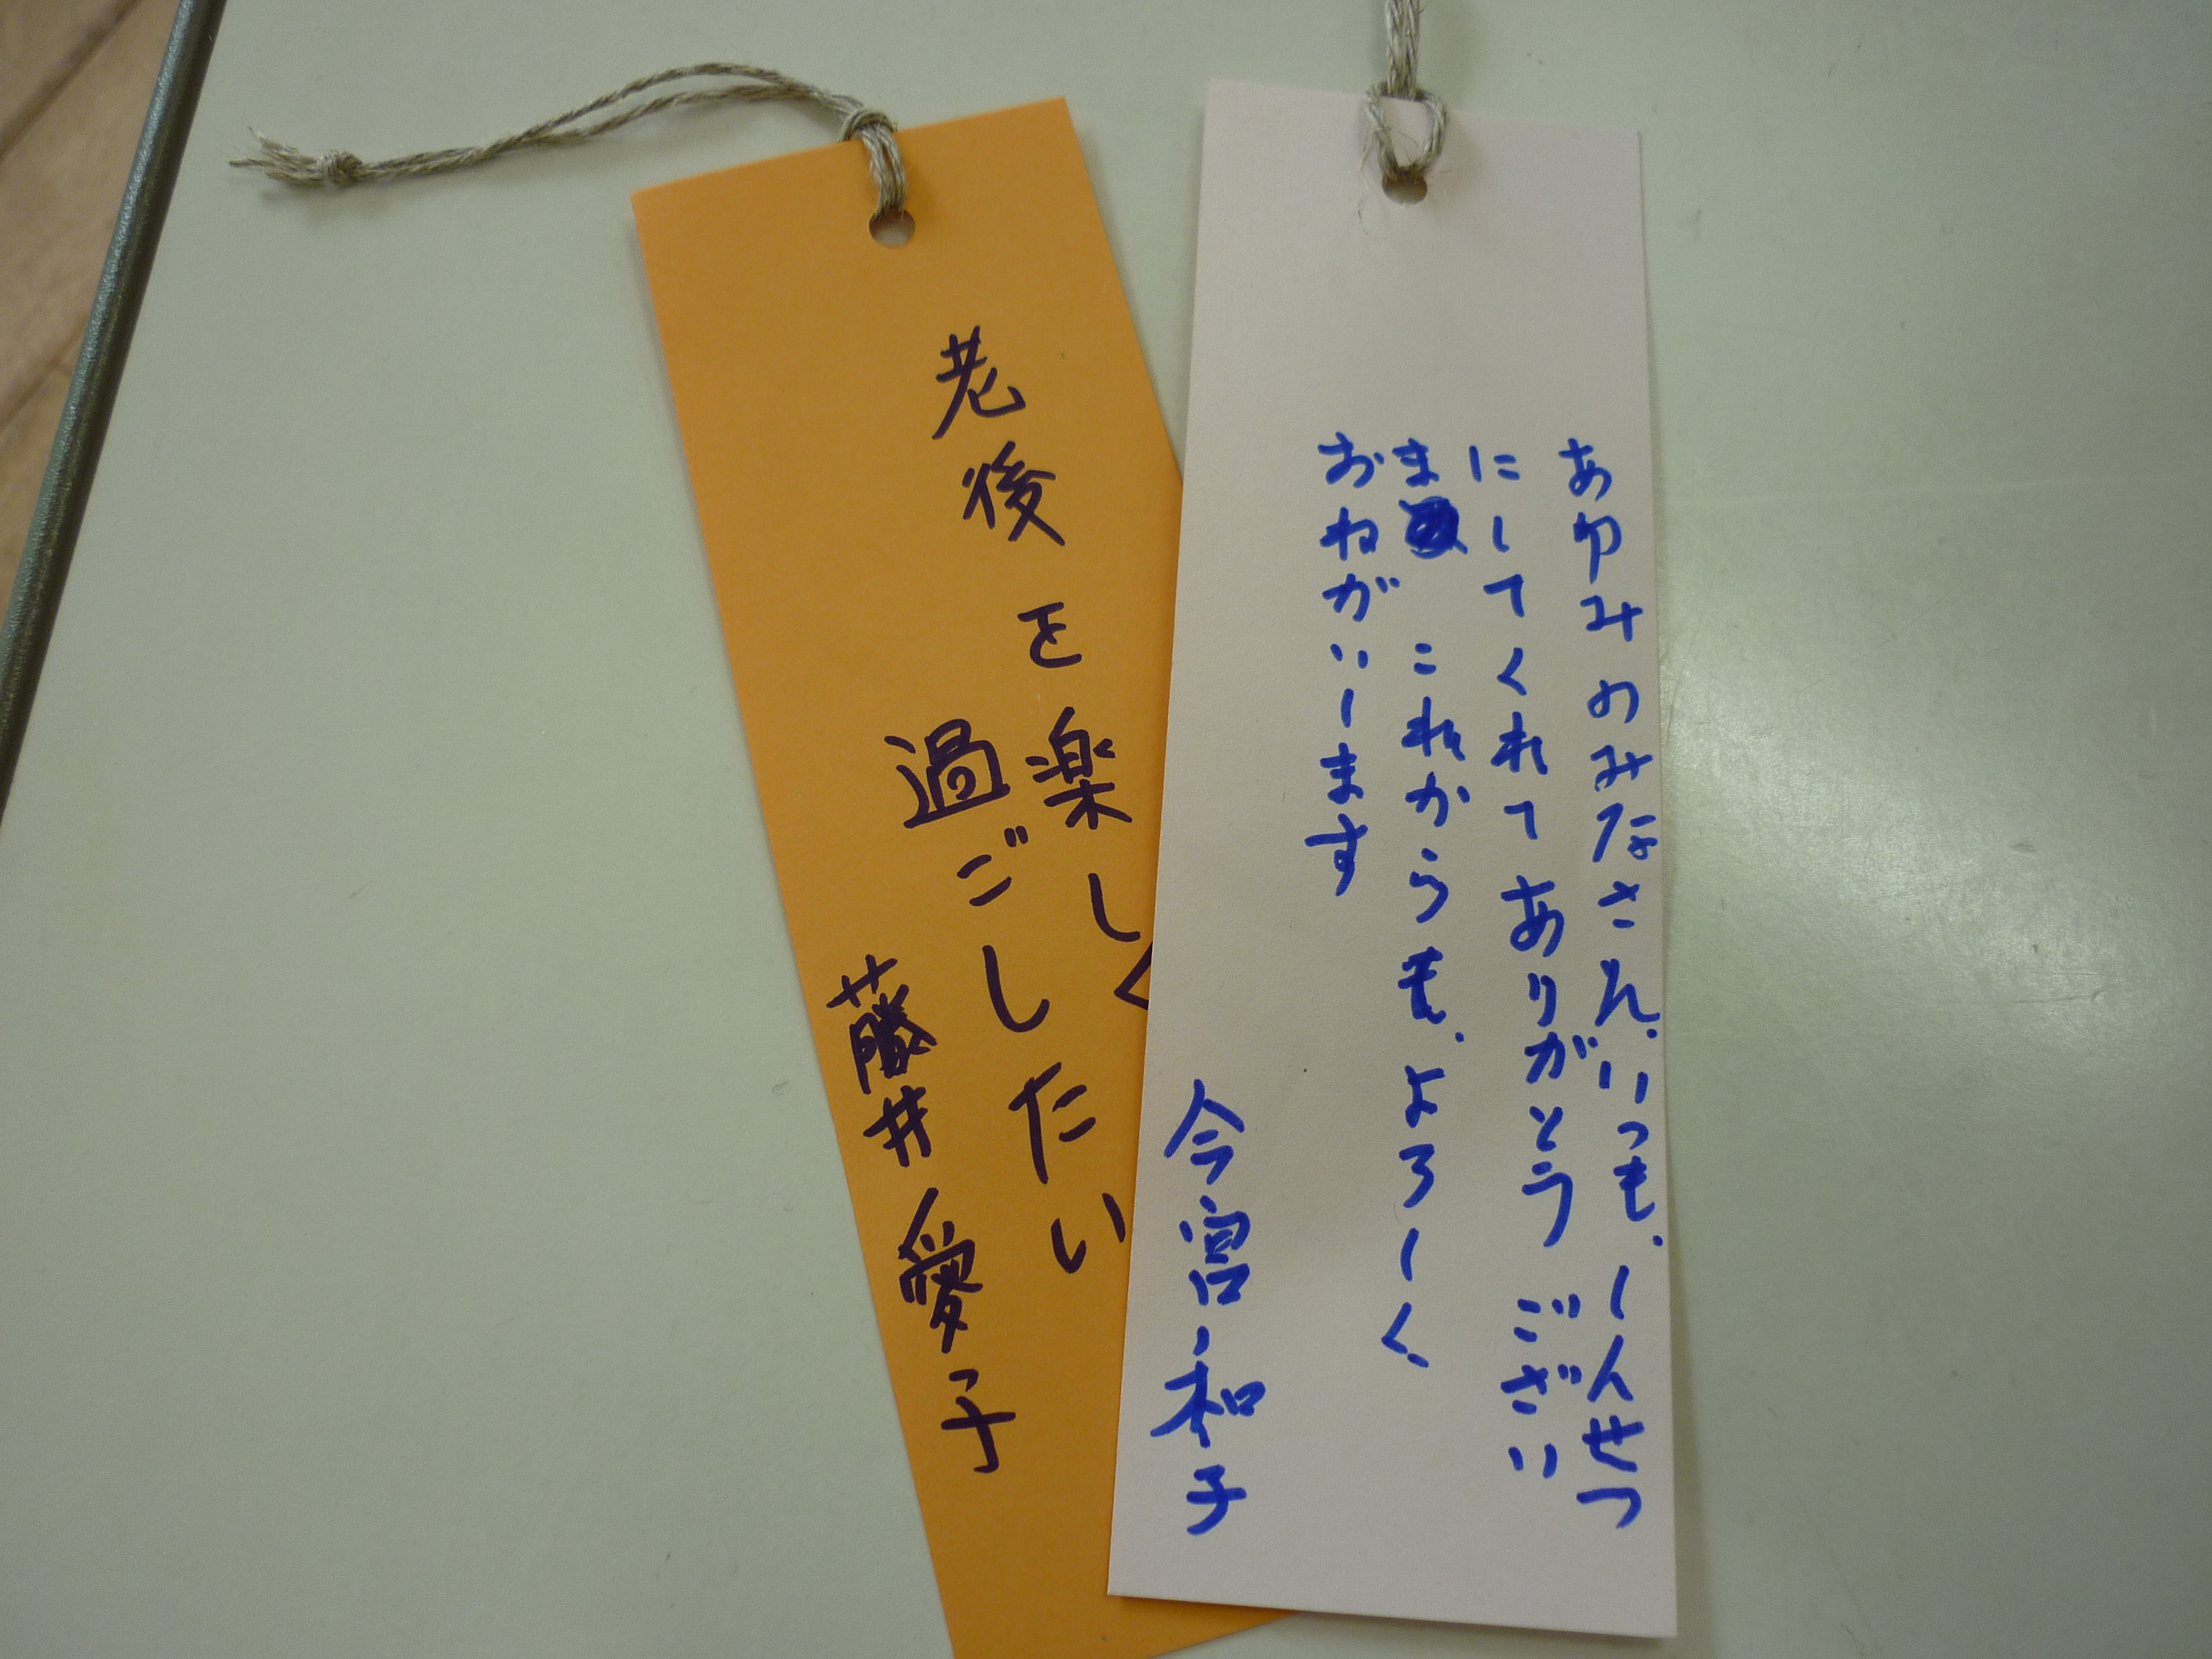 老後を楽しく
過ごしたい
藤井愛子
あゆみのみなさん.いつも.しんせつ
にしてくれてありがとうござい
ま これからも.よろしく
おねがいします
今宮和子